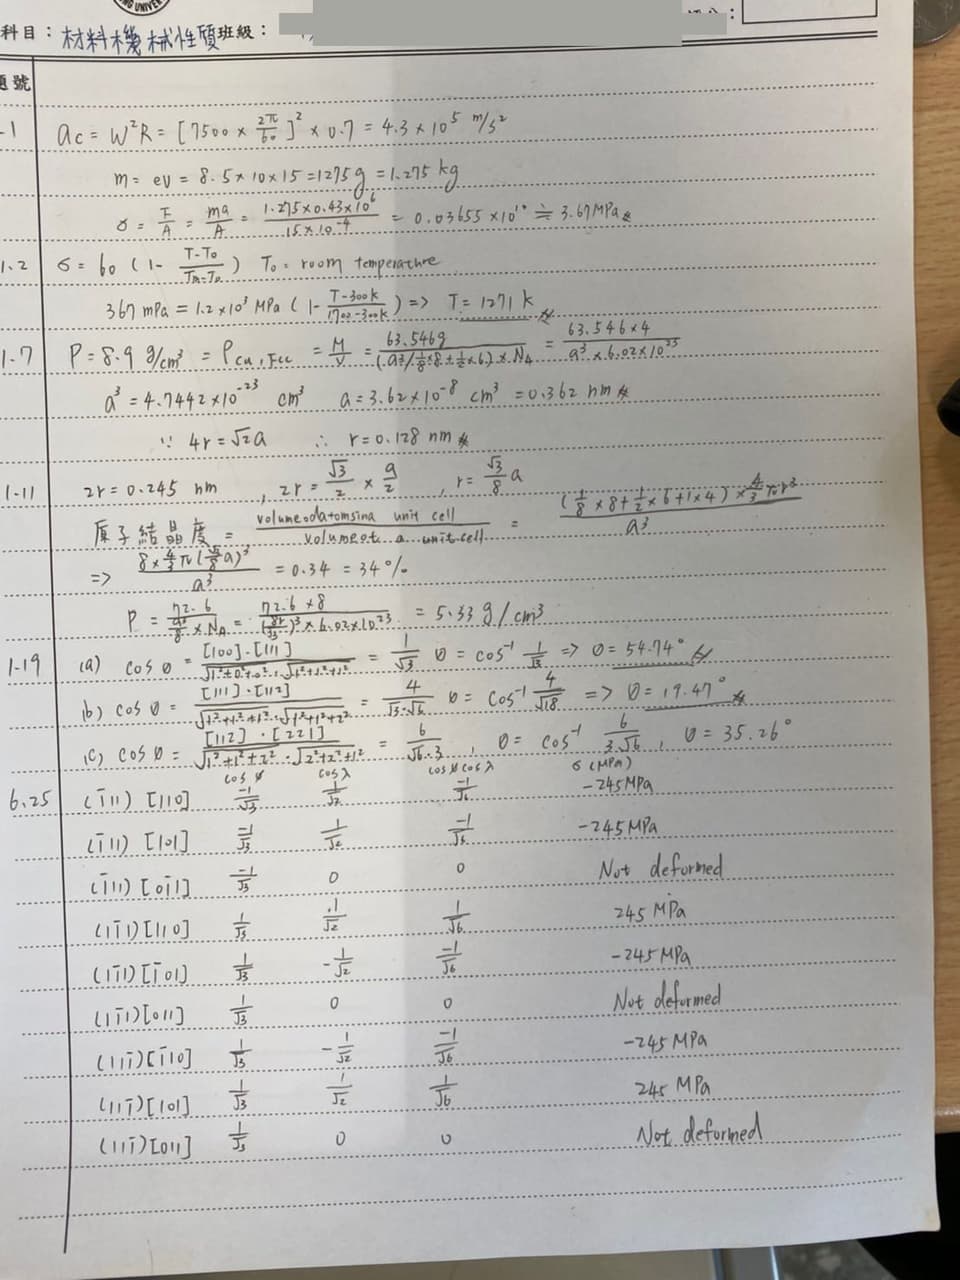 NG UNIVER
科目：材料機械性質班級：
題號
-1 ac = W²R = [7500 × 2π/60]² × 0.7 = 4.3 × 10⁵ m/s²
m = ρv = 8.5 × 10 × 15 = 1275 g = 1.275 kg
σ = F/A = ma/A = 1.275×0.43×10⁶ / 15×10⁻⁴ = 0.03655 ×10¹⁰ ≒ 3.67 MPa
1.2 σ = σ₀ (1 - T-T₀/Tm-T₀) T₀ = room temperature
367 mPa = 1.2 × 10³ MPa (1 - T-300k/1700-300k) => T = 1271 k
1-7 ρ = 8.9 g/cm³ = ρcu, Fcc = M/V = 63.546g / (a³/⅛×8+½×6) × NA = 63.546×4 / a³ × 6.02×10²³
a³ = 4.7442×10⁻²³ cm³ a = 3.62×10⁻⁸ cm³ = 0.362 nm
∵ 4r = √2a ∴ r = 0.128 nm
1-11 2r = 0.245 nm , 2r = √3/2 × a/2 , r = √3/8 a
原子結晶度 = volumeodatomsina unit cell / volumeot a unit cell = (⅛ × 8 + ½ × 6 + 1 × 4) × 4/3 πr³ / a³
=> 8 × 4/3 π (√3/8 a)³ / a³ = 0.34 = 34%
ρ = 72.6 / a³/8 × NA = 72.6 × 8 / (8r/√3)³ × 6.02×10²³ = 5.33 g/cm³
1-19 (a) cos θ = [100]·[111] / √1²+0²+0² · √1²+1²+1² = 1/√3 θ = cos⁻¹ 1/√3 => θ = 54.74°
(b) cos θ = [111]·[112] / √1²+1²+1² · √1²+1²+2² = 4/√3·√6 θ = cos⁻¹ 4/√18 => θ = 19.47°
(c) cos θ = [112]·[221] / √1²+1²+2² · √2²+2²+1² = 6/√6·3 , θ = cos⁻¹ 6/3√6 , θ = 35.26°
cos φ cos λ cos φ cos λ σ (MPa)
6.25 (1̄11) [110] -1/√3 1/√2 -1/√6 -245 MPa
(1̄11) [101] -1/√3 1/√2 -1/√6 -245 MPa
(1̄11) [01̄1] -1/√3 0 0 Not deformed
(11̄1) [110] 1/√3 1/√2 1/√6 245 MPa
(11̄1) [1̄01] 1/√3 -1/√2 -1/√6 -245 MPa
(11̄1) [011] 1/√3 0 0 Not deformed
(111̄) [1̄10] 1/√3 -1/√2 -1/√6 -245 MPa
(111̄) [101] 1/√3 1/√2 1/√6 245 MPa
(111̄) [011] 1/√3 0 0 Not deformed